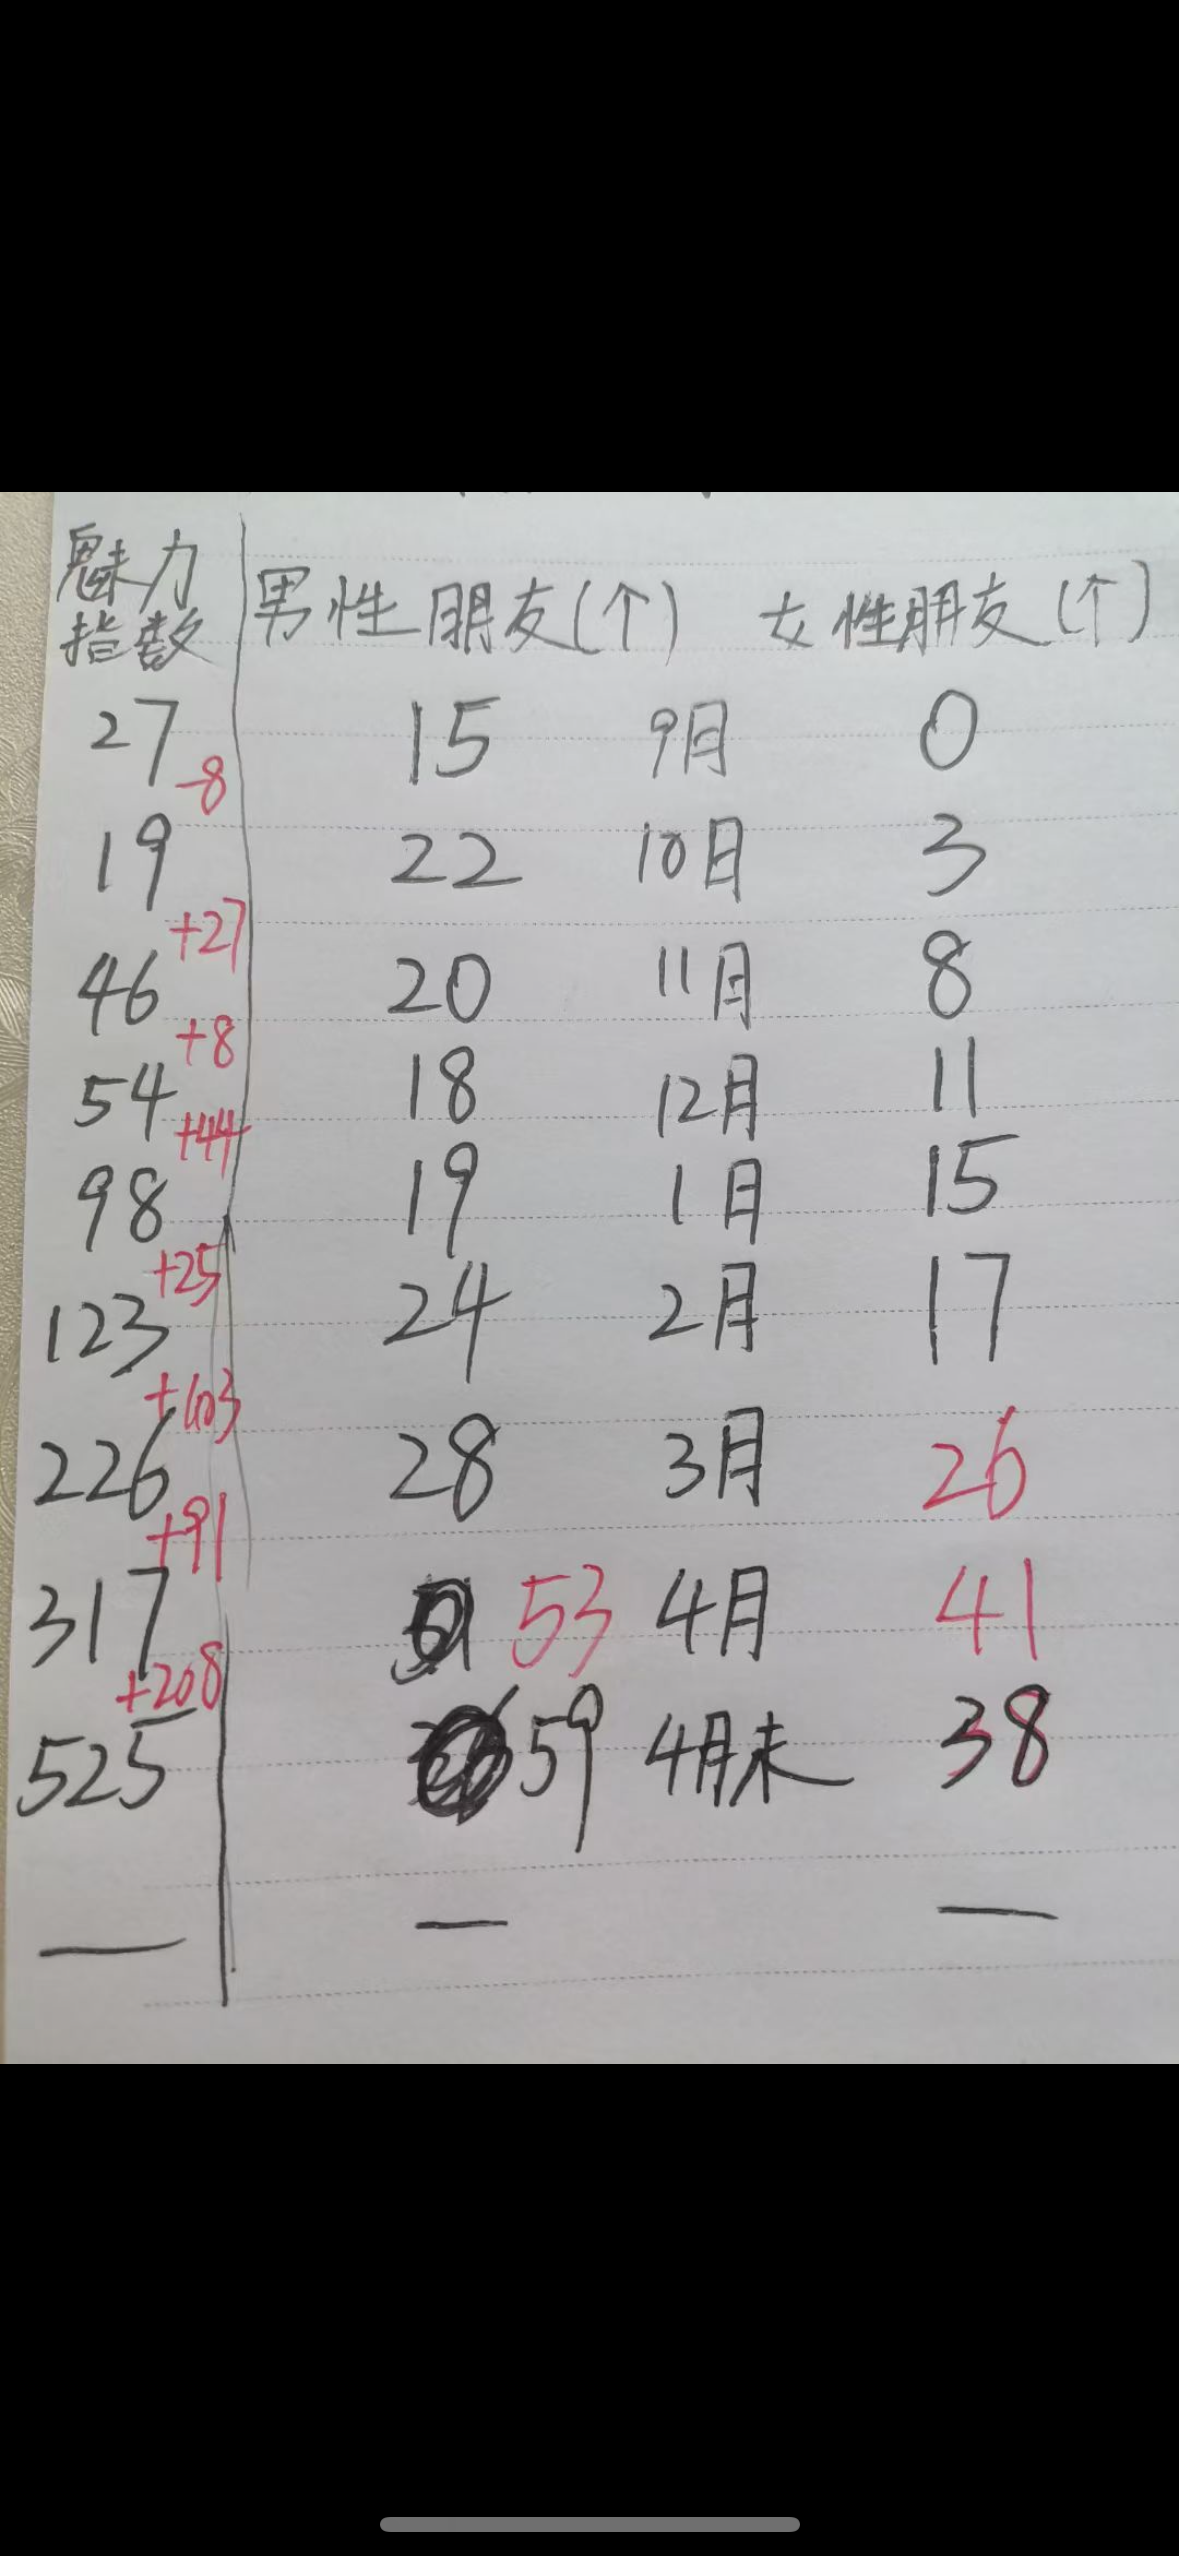 魅力
指数
男性朋友(个) 女性朋友(个)
27 15 9月 0
-8
19 22 10月 3
+27
46 20 11月 8
+8
54 18 12月 11
+44
98 19 1月 15
+25
123 24 2月 17
+103
226 28 3月 26
+91
317 53 4月 41
+208
525 59 4月末 38